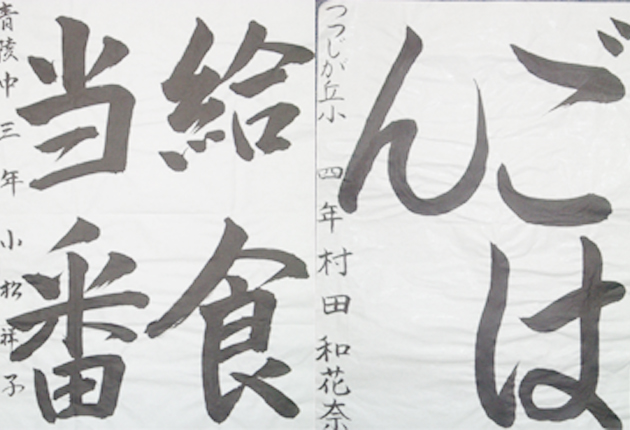 ごは
ん
つつじが丘小 四年 村田 和花奈
給食
当番
青陵中 三年 小松祥子